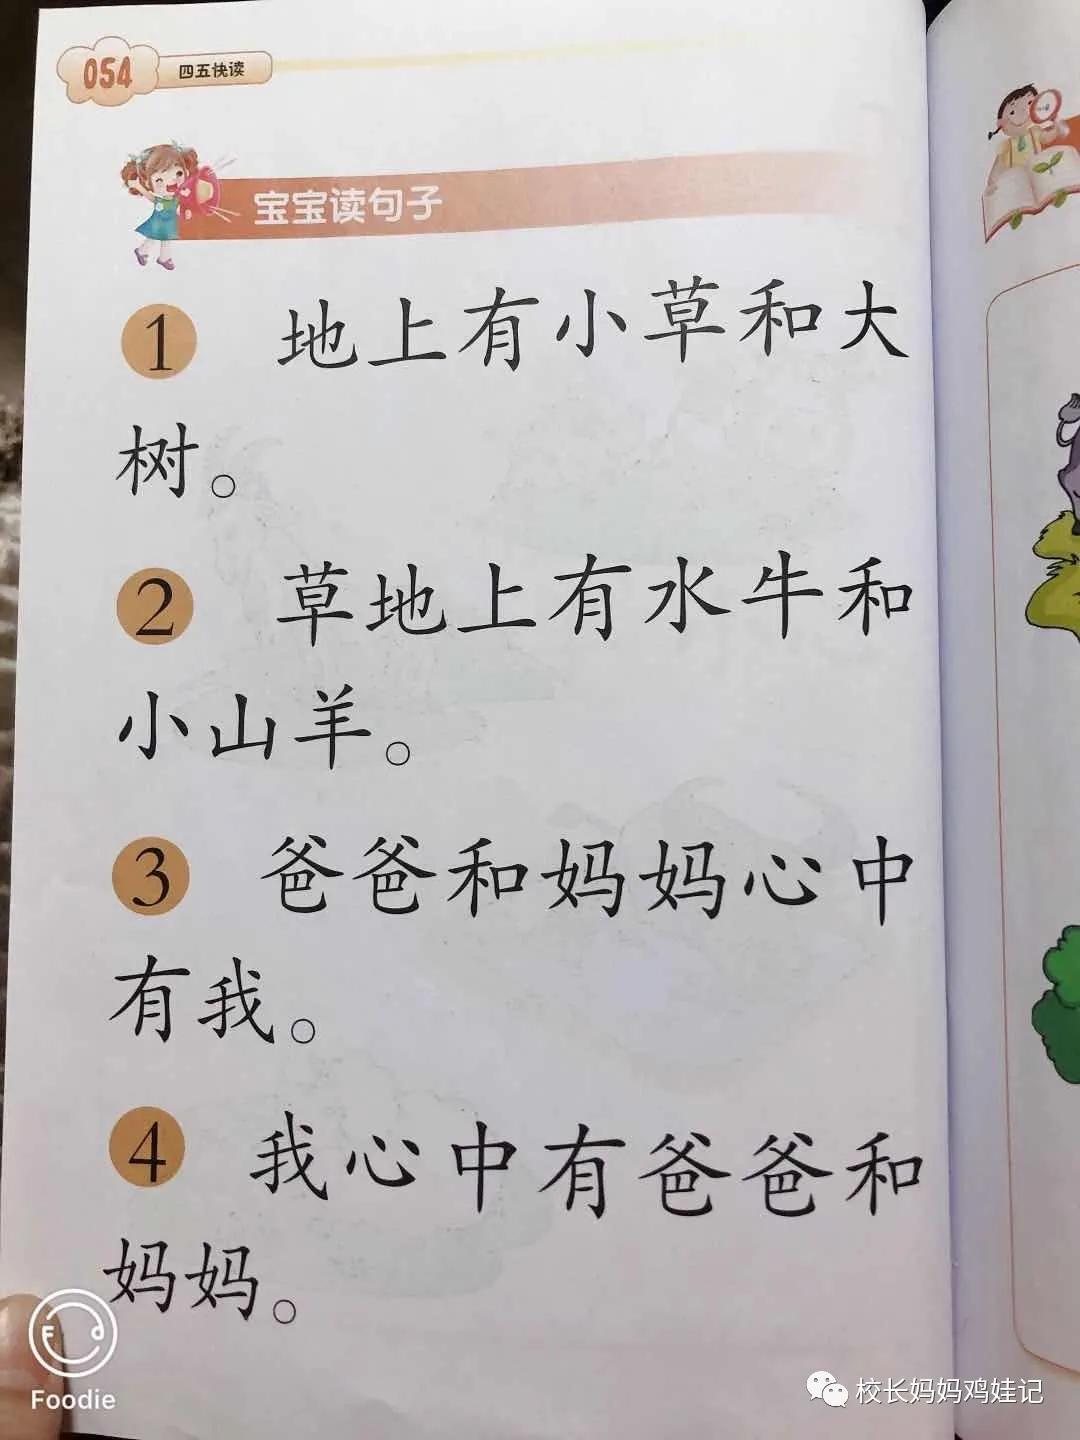 054 四五快读
宝宝读句子
1 地上有小草和大
树。
2 草地上有水牛和
小山羊。
3 爸爸和妈妈心中
有我。
4 我心中有爸爸和
妈妈。
Foodie
校长妈妈鸡娃记